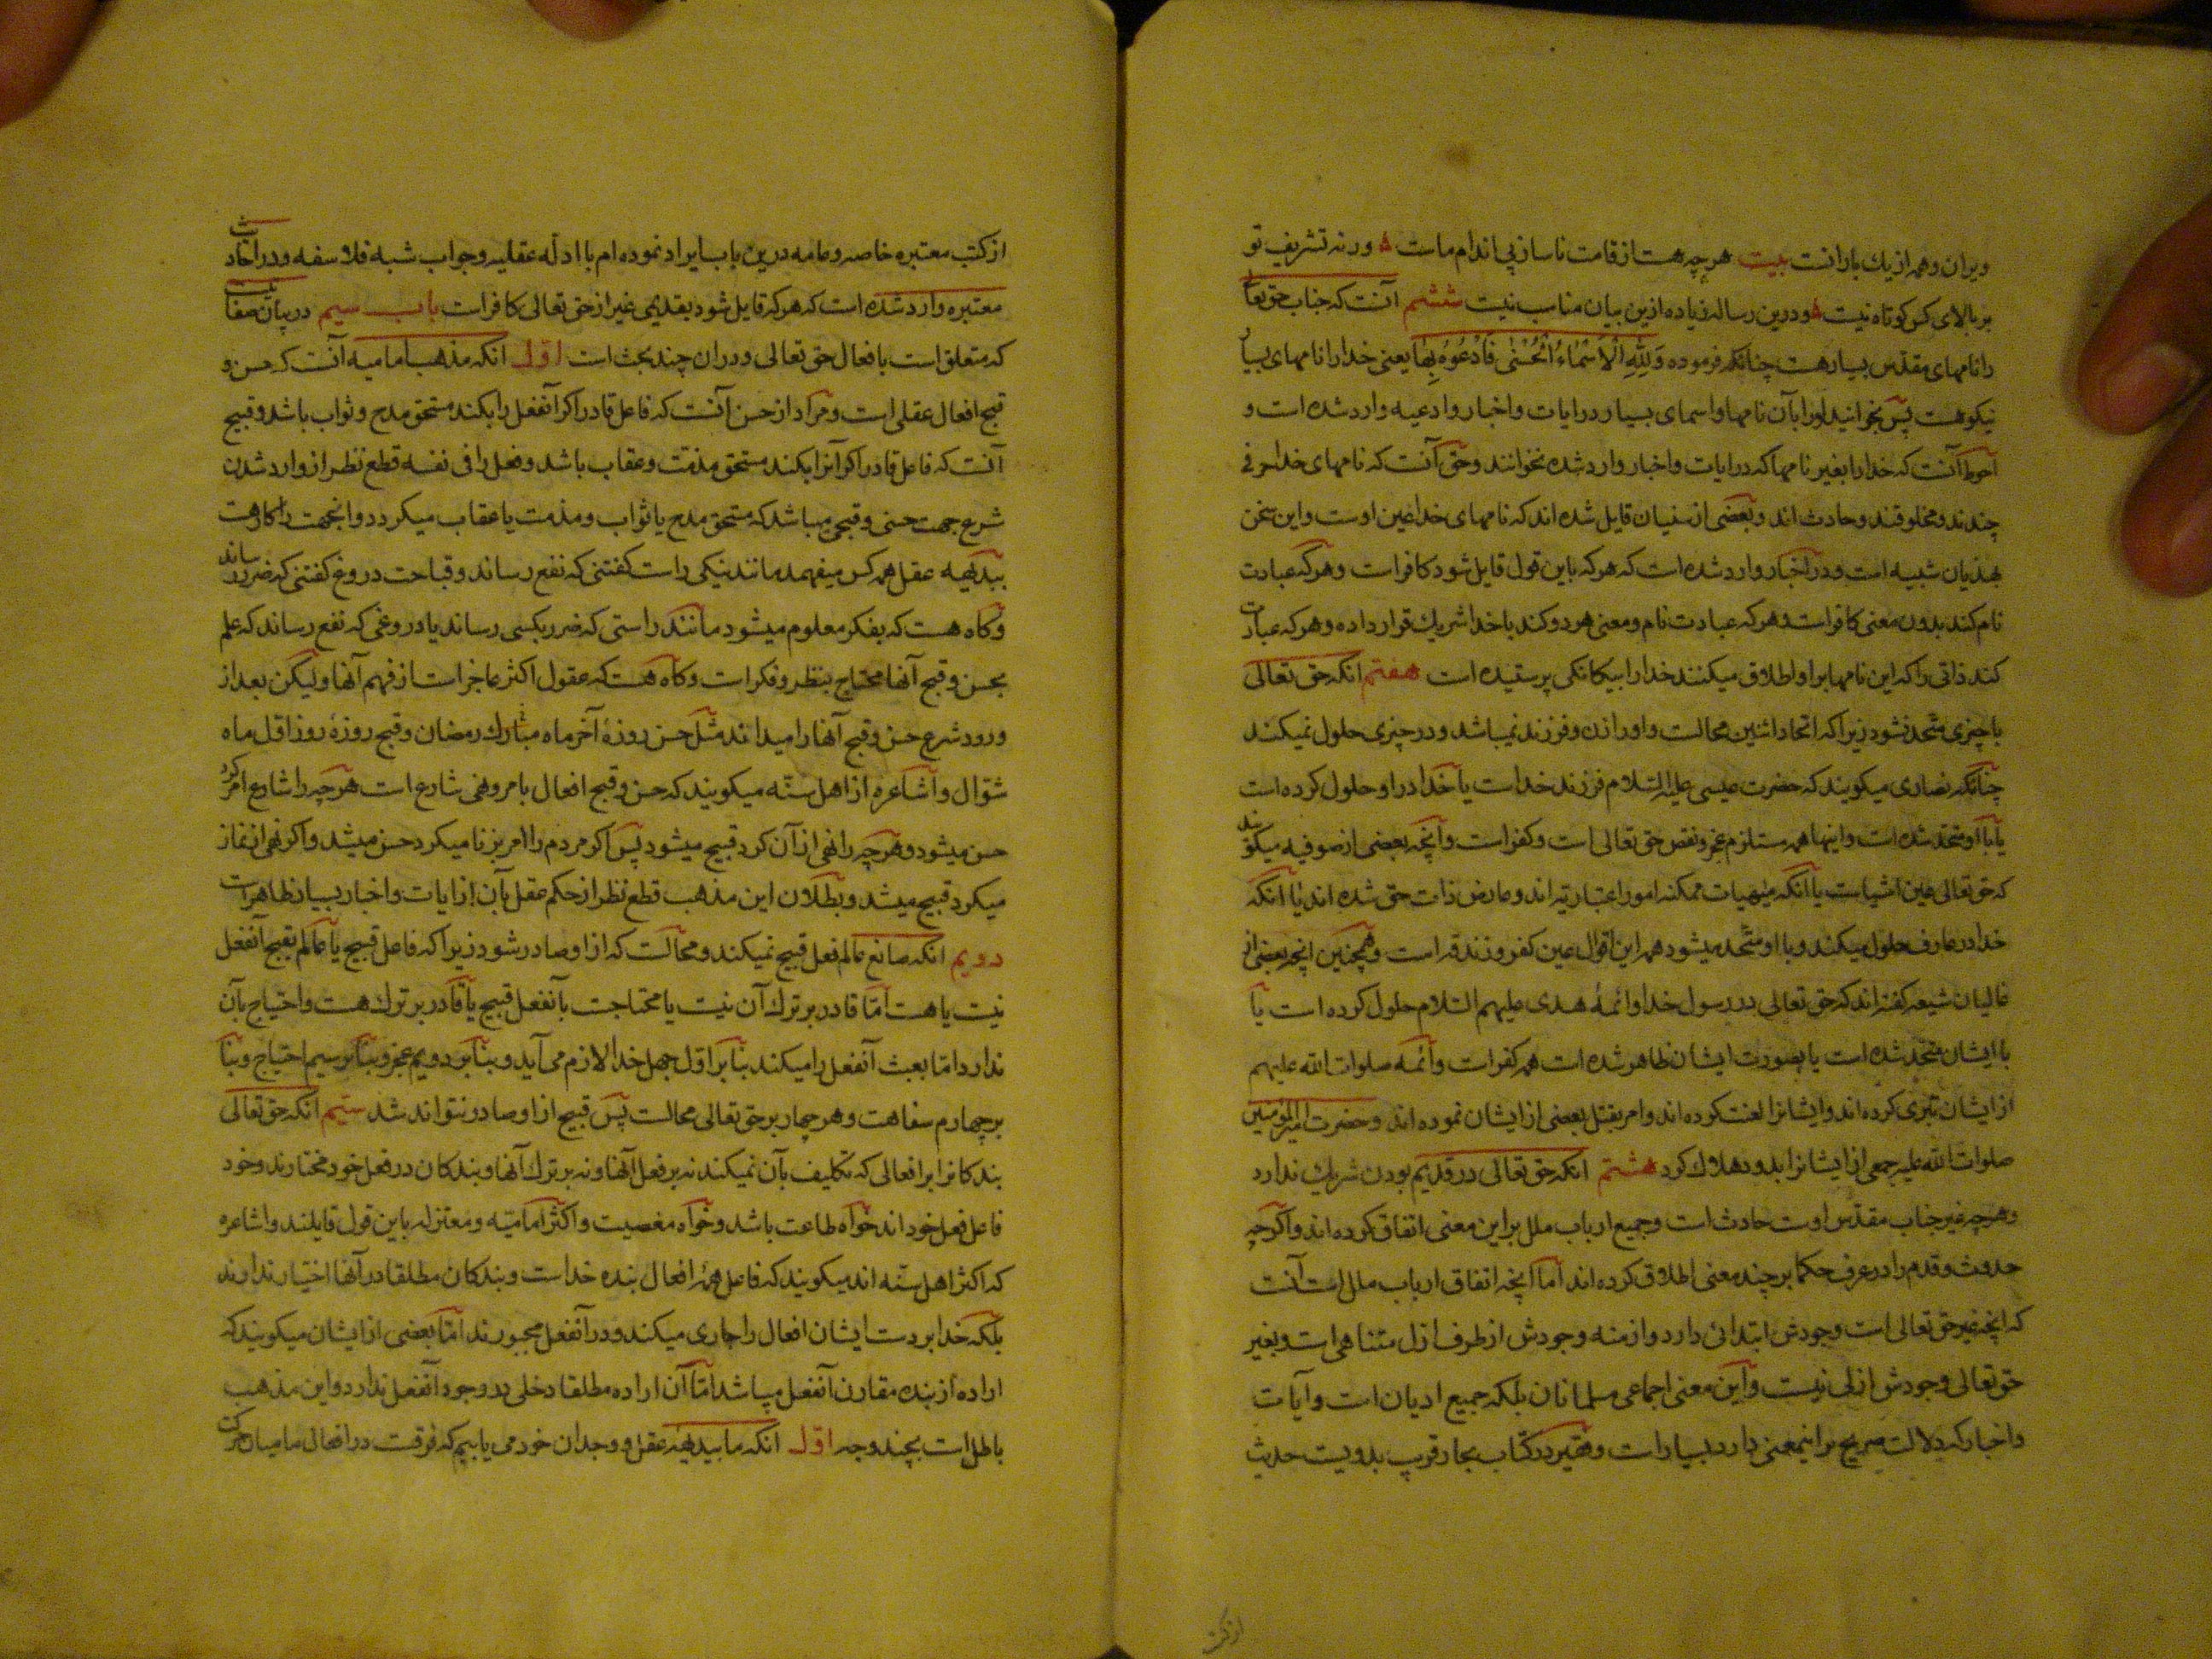 ویران و همه از یک بارانست بیت هر چه هست از قامت ناساز بی اندام ماست ورنه تشریف تو
بر بالای کس کوتاه نیست و درین رساله زیاده ازین بیان مناسب نیست ششم آنست که جناب حق تعالی
را نامهای مقدس بسیار هست چنانکه فرموده وَلِلّٰهِ الْاَسْمَاءُ الْحُسْنٰی فَادْعُوهُ بِهَا یعنی خدا را نامهای بسیار
نیکو هست پس بخوانید او را بآن نامها و اسمای بسیار در ایات و اخبار و ادعیه وارد شده است و
احوط آنست که خدا را بغیر نامها که در ایات و اخبار وارد شده نخوانند و حق آنست که نامهای خدا حرفی
چندند و مخلوقند و حادث اند و بعضی از سنیان قایل شده اند که نامهای خدا عین اوست و این سخن
بهذیان شبیه است و در اخبار وارد شده است که هر که باین قول قایل شود کافر است و هر که عبادت
نام کند بدون معنی کافر است و هر که عبادت نام و معنی هر دو کند با خدا شریک قرار داده و هر که عبادت
کند ذاتی را که این نامها بر او اطلاق میکنند خدا را بیکانکی پرستیده است هفتم انکه حق تعالی
با چیزی متحد نشود زیرا که اتحاد اثنین محالست و او را زن و فرزند نمیباشد و در چیزی حلول نمیکند
چنانکه نصاری میکویند که حضرت عیسی علیه السلام فرزند خداست یا خدا در او حلول کرده است
یا با او متحد شده است و اینها همه مستلزم عجز و نقص حق تعالی است و کفر است و آنچه بعضی از صوفیه میکویند
که حق تعالی عین اشیاست یا آنکه مهیات ممکنه امور اعتباریه اند و عارض ذات حق شده اند یا آنکه
خدا در عارف حلول میکند و با او متحد میشود همه این اقوال عین کفر و زندقه است و همچنین انچه بعضی از
غالیان شیعه کفته اند که حق تعالی در رسول خدا و ائمهٔ هدی علیهم السلام حلول کرده است یا
با ایشان متحد شده است یا بصورت ایشان ظاهر شده است همه کفر است و ائمه صلوات الله علیهم
از ایشان تبری کرده اند و ایشانرا لعنت کرده اند و امر بقتل بعضی از ایشان نموده اند و حضرت امیر المؤمنین
صلوات الله علیه جمعی از ایشانرا بدود هلاک کرد هشتم انکه حق تعالی در قدیم بودن شریک ندارد
و هر چه غیر جناب مقدس اوست حادث است و جمیع ارباب ملل بر این معنی اتفاق کرده اند و اکر چه
حدوث و قدم را در عرف حکما بر چند معنی اطلاق کرده اند اما آنچه اتفاق ارباب ملل است آنست
که انچه غیر حق تعالی است وجودش ابتدائی دارد و ازمنه وجودش از طرف ازل متناهی است و بغیر
حق تعالی وجودش ازلی نیست و این معنی اجماعی مسلمانان بلکه جمیع ادیان است و آیات
و اخبار که دلالت صریح بر اینمعنی دارد بسیار است و فقیر در کتاب بحار قریب بدویست حدیث
از کتب
از کتب معتبره خاصه و عامه درین باب ایراد نموده ام با ادله عقلیه و جواب شبه فلاسفه و در احادیث
معتبره وارد شده است که هر که قایل شود بقدیمی غیر از حق تعالی کافر است باب سیم در بیان صفاتیست
که متعلق است بافعال حق تعالی و دران چند بحث است اول انکه مذهب امامیه آنست که حسن و
قبح افعال عقلی است و مراد از حسن آنست که فاعل قادر اکر آنفعل را بکند مستحق مدح و ثواب باشد و قبیح
آنست که فاعل قادر اکر آنرا بکند مستحق مذمت و عقاب باشد و فعل را فی نفسه قطع نظر از وارد شدن
شرع جهت حسنی و قبحی میباشد که مستحق مدح یا ثواب و مذمت یا عقاب میکردد و انجهت را کاه هست
ببدیهه عقل همه کس میفهمد مانند نیکی راست کفتنی که نفع رساند و قباحت دروغ کفتنی که ضرر رساند
و کاه هست که بفکر معلوم میشود مانند راستی که ضرر بکسی رساند یا دروغی که نفع رساند که علم
بحسن و قبح آنها محتاج بنظر و فکر است و کاه هست که عقول اکثر عاجز است از فهم آنها و لیکن بعد از
ورود شرع حسن و قبح آنها را میدانند مثل حسن روزهٔ آخر ماه مبارک رمضان و قبح روزهٔ روز اول ماه
شوال و اشاعره از اهل سنّه میکویند که حسن و قبح افعال بامر و نهی شارع است هر چه را شارع امر کرد
حسن میشود و هر چه را نهی از آن کرد قبیح میشود پس اکر مردم را امر بزنا میکرد حسن میشد و اکر نهی از نماز
میکرد قبیح میشد و بطلان این مذهب قطع نظر از حکم عقل بآن از ایات و اخبار بسیار ظاهر است
دویم انکه صانع عالم فعل قبیح نمیکند و محالست که از او صادر شود زیرا که فاعل قبیح یا عالم بقبح آنفعل
نیست یا هست اما قادر بر ترک آن نیست یا محتاجست بآنفعل قبیح یا قادر بر ترک هست و احتیاج بآن
ندارد اما بعبث آنفعل را میکند بنا بر اول جهل خدا لازم می آید و بنا بر دویم عجز و بنا بر سیم احتیاج و بنا
بر چهارم سفاهت و هر چهار بر حق تعالی محالست پس قبیح از او صادر نتواند شد سیم انکه حق تعالی
بندکانرا بر افعالی که تکلیف بآن نمیکند نه بر فعل آنها و نه بر ترک آنها و بندکان در فعل خود مختارند و خود
فاعل فعل خودند خواه طاعت باشد و خواه معصیت و اکثر امامیّه و معتزله باین قول قایلند و اشاعره
که اکثر اهل سنّه اند میکویند که فاعل همهٔ افعال بنده خداست و بندکان مطلقا در آنها اختیار ندارند
بلکه خدا بر دست ایشان افعال را جاری میکند و در آنفعل مجبورند اما بعضی از ایشان میکویند که
اراده از بنده مقارن آنفعل میباشد اما آن اراده مطلقا دخلی در وجود آنفعل ندارد و این مذهب
باطل است بچند وجه اول انکه ما ببدیهه عقل و وجدان خود می یابیم که فرقست در افعال ما میان حرکت